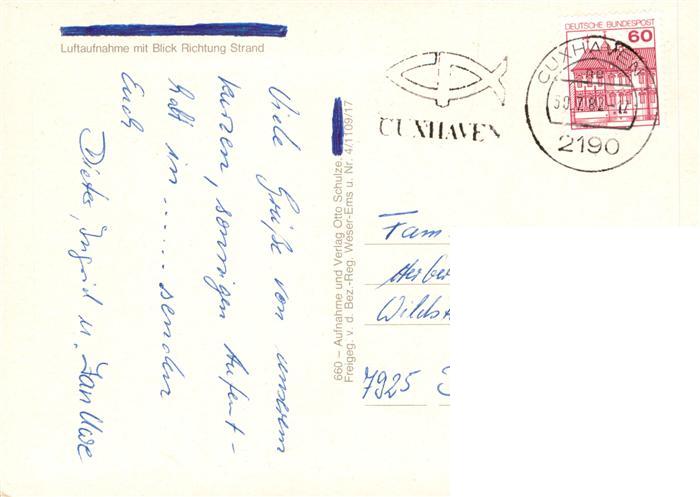 Luftaufnahme mit Blick Richtung Strand
Viele Grüße von unserem
kurzen, sonnigen Aufent-
halt in ...... senden
Euch
Dieter, Ingrid u. Jan Uwe
660 – Aufnahme und Verlag Otto Schulze,
Freigeg. v. d. Bez.-Reg. Weser-Ems u. Nr. 4/1109/17
CUXHAVEN
DEUTSCHE BUNDESPOST
60
CUXHAVEN
2190
Fam
Herber
7925